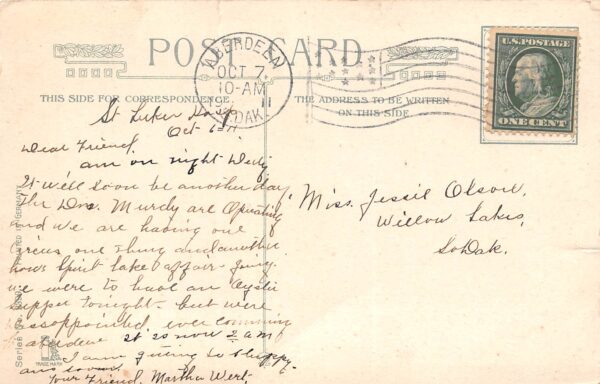 POST CARD
ABERDEEN
OCT 7
10-AM
11
S.DAK.
U.S. POSTAGE
ONE CENT
THIS SIDE FOR CORRESPONDENCE.
THE ADDRESS TO BE WRITTEN
ON THIS SIDE.
St Lukes
Oct 6-11
Dear Friend,
am on night Duty
It will soon be another day
The Drs. Murdy are Operating
and we are having one
circus one thing and another
hows Spirit Lake affair going.
we were to have an Oyster
supper tonight - but were
dissappointed
it is now 2 am
I am going to
Your Friend, Martha Wert.
Miss. Jessie Olson,
Willow Lakes,
So Dak.
Series No.
PRINTED IN GERMANY
TRADE MARK